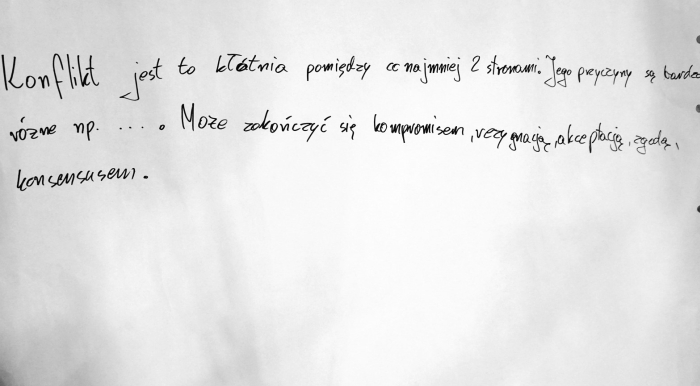 Konflikt jest to kłótnia pomiędzy co najmniej 2 stronami. Jego przyczyny są bardzo
różne np. .... . Może zakończyć się kompromisem, rezygnacją, akceptacją, zgodą,
konsensusem.